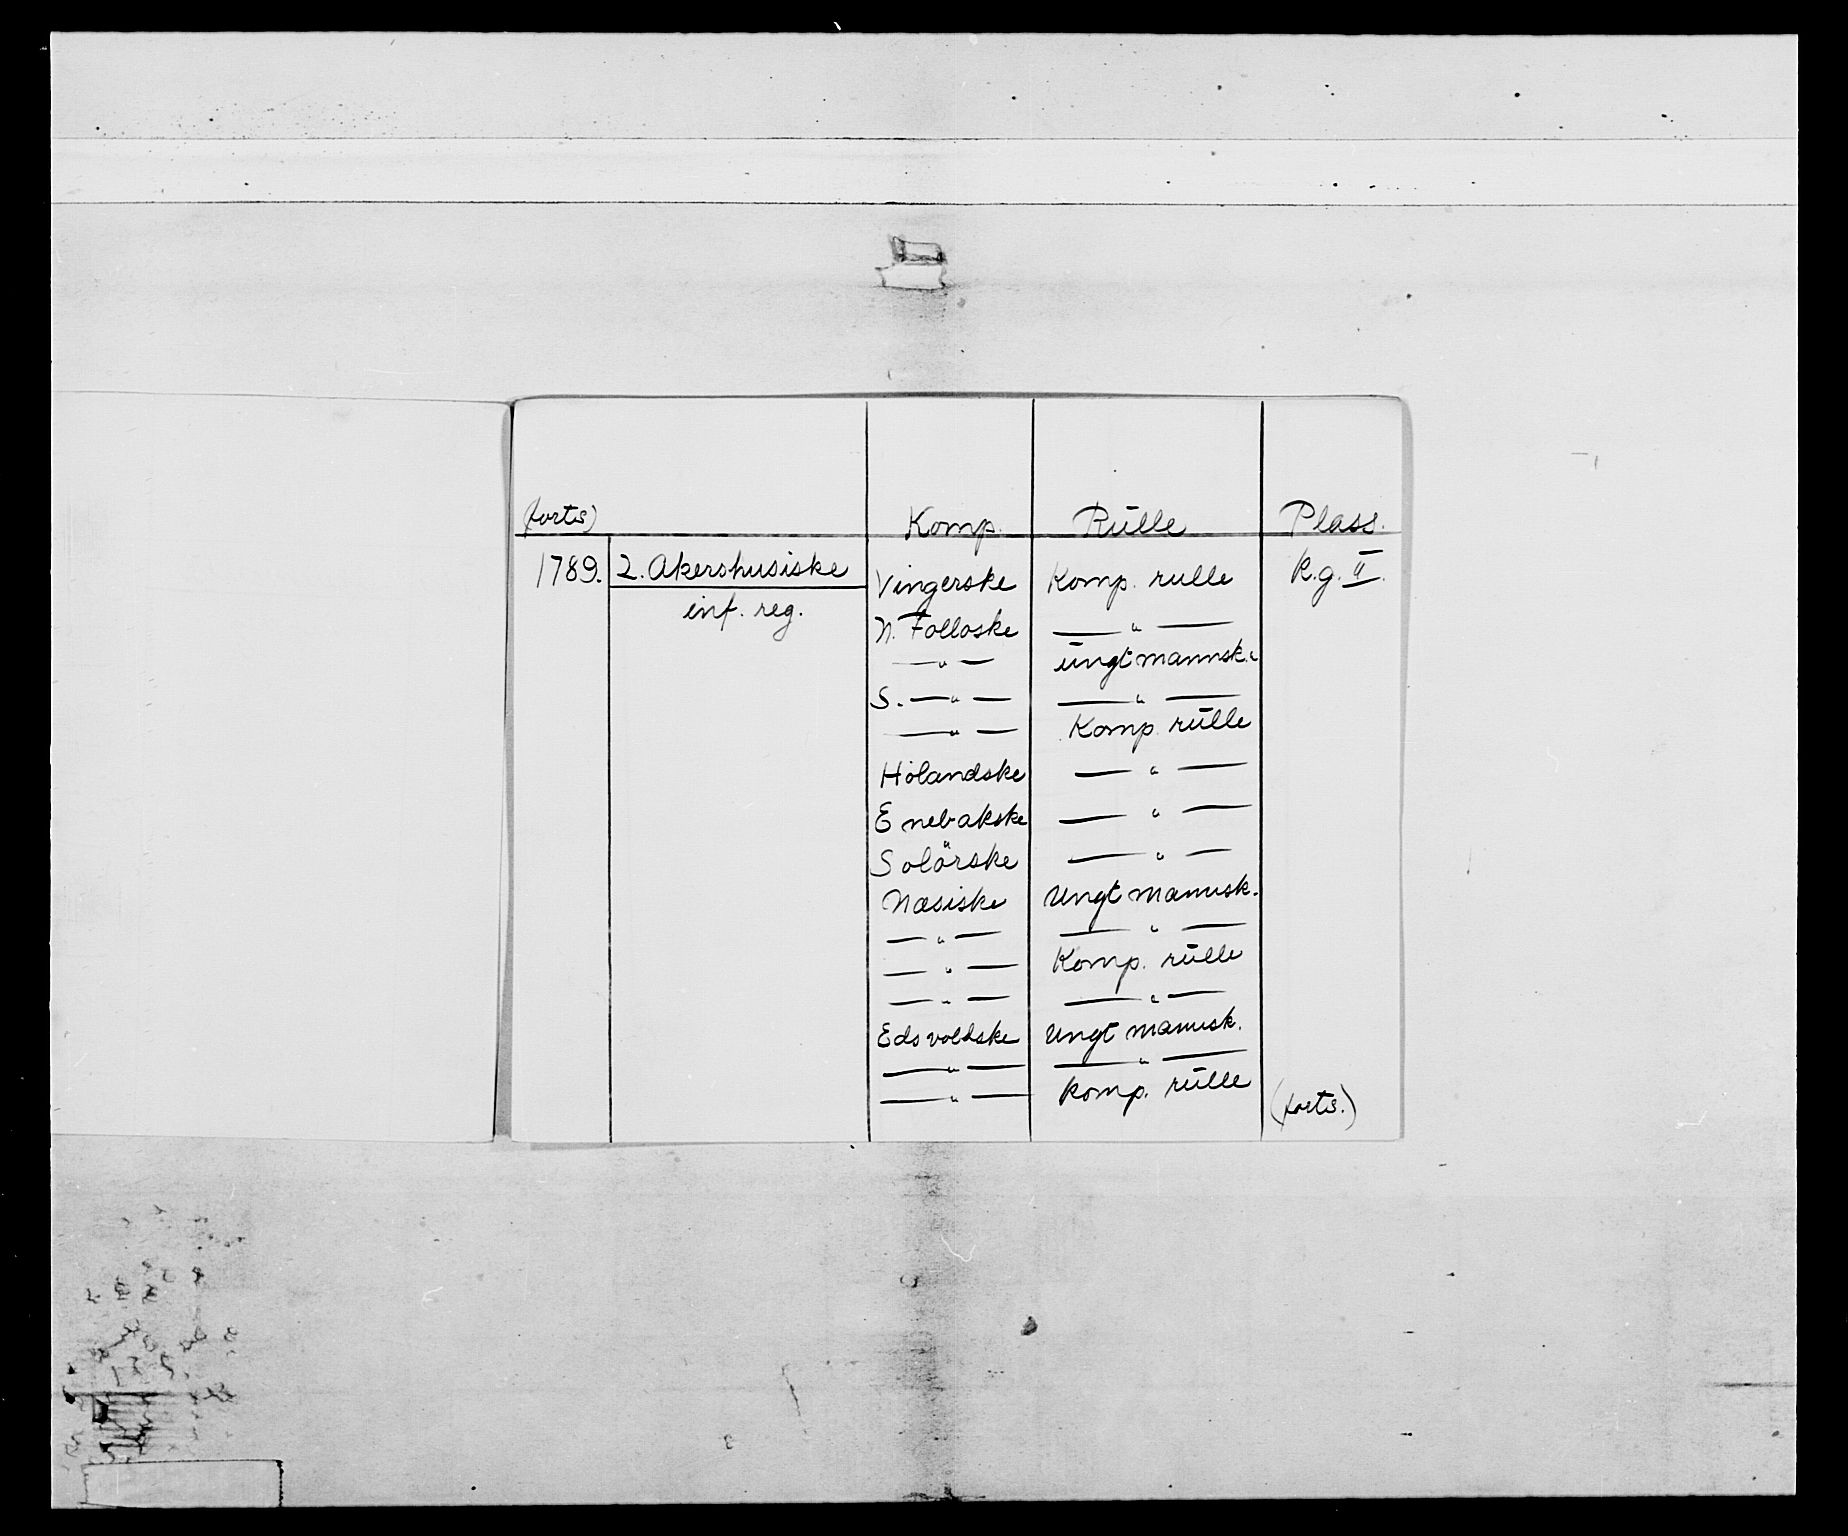 (forts)
Komp. Rulle Plass.
1789. 2. Akershusiske Vingerske Komp. rulle R.g. II.
inf. reg.
N. Folloske — " —
— " — ungt mannsk.
S. — " — — " —
— " — Komp. rulle
Hölandske — " —
Enebakske — " —
Solörske — " —
Næsiske Ungt mannsk.
— " — — " —
— " — Komp. rulle
— " — — " —
Edsvoldske Ungt mannsk.
— " — — " —
— " — Komp. rulle
(forts.)